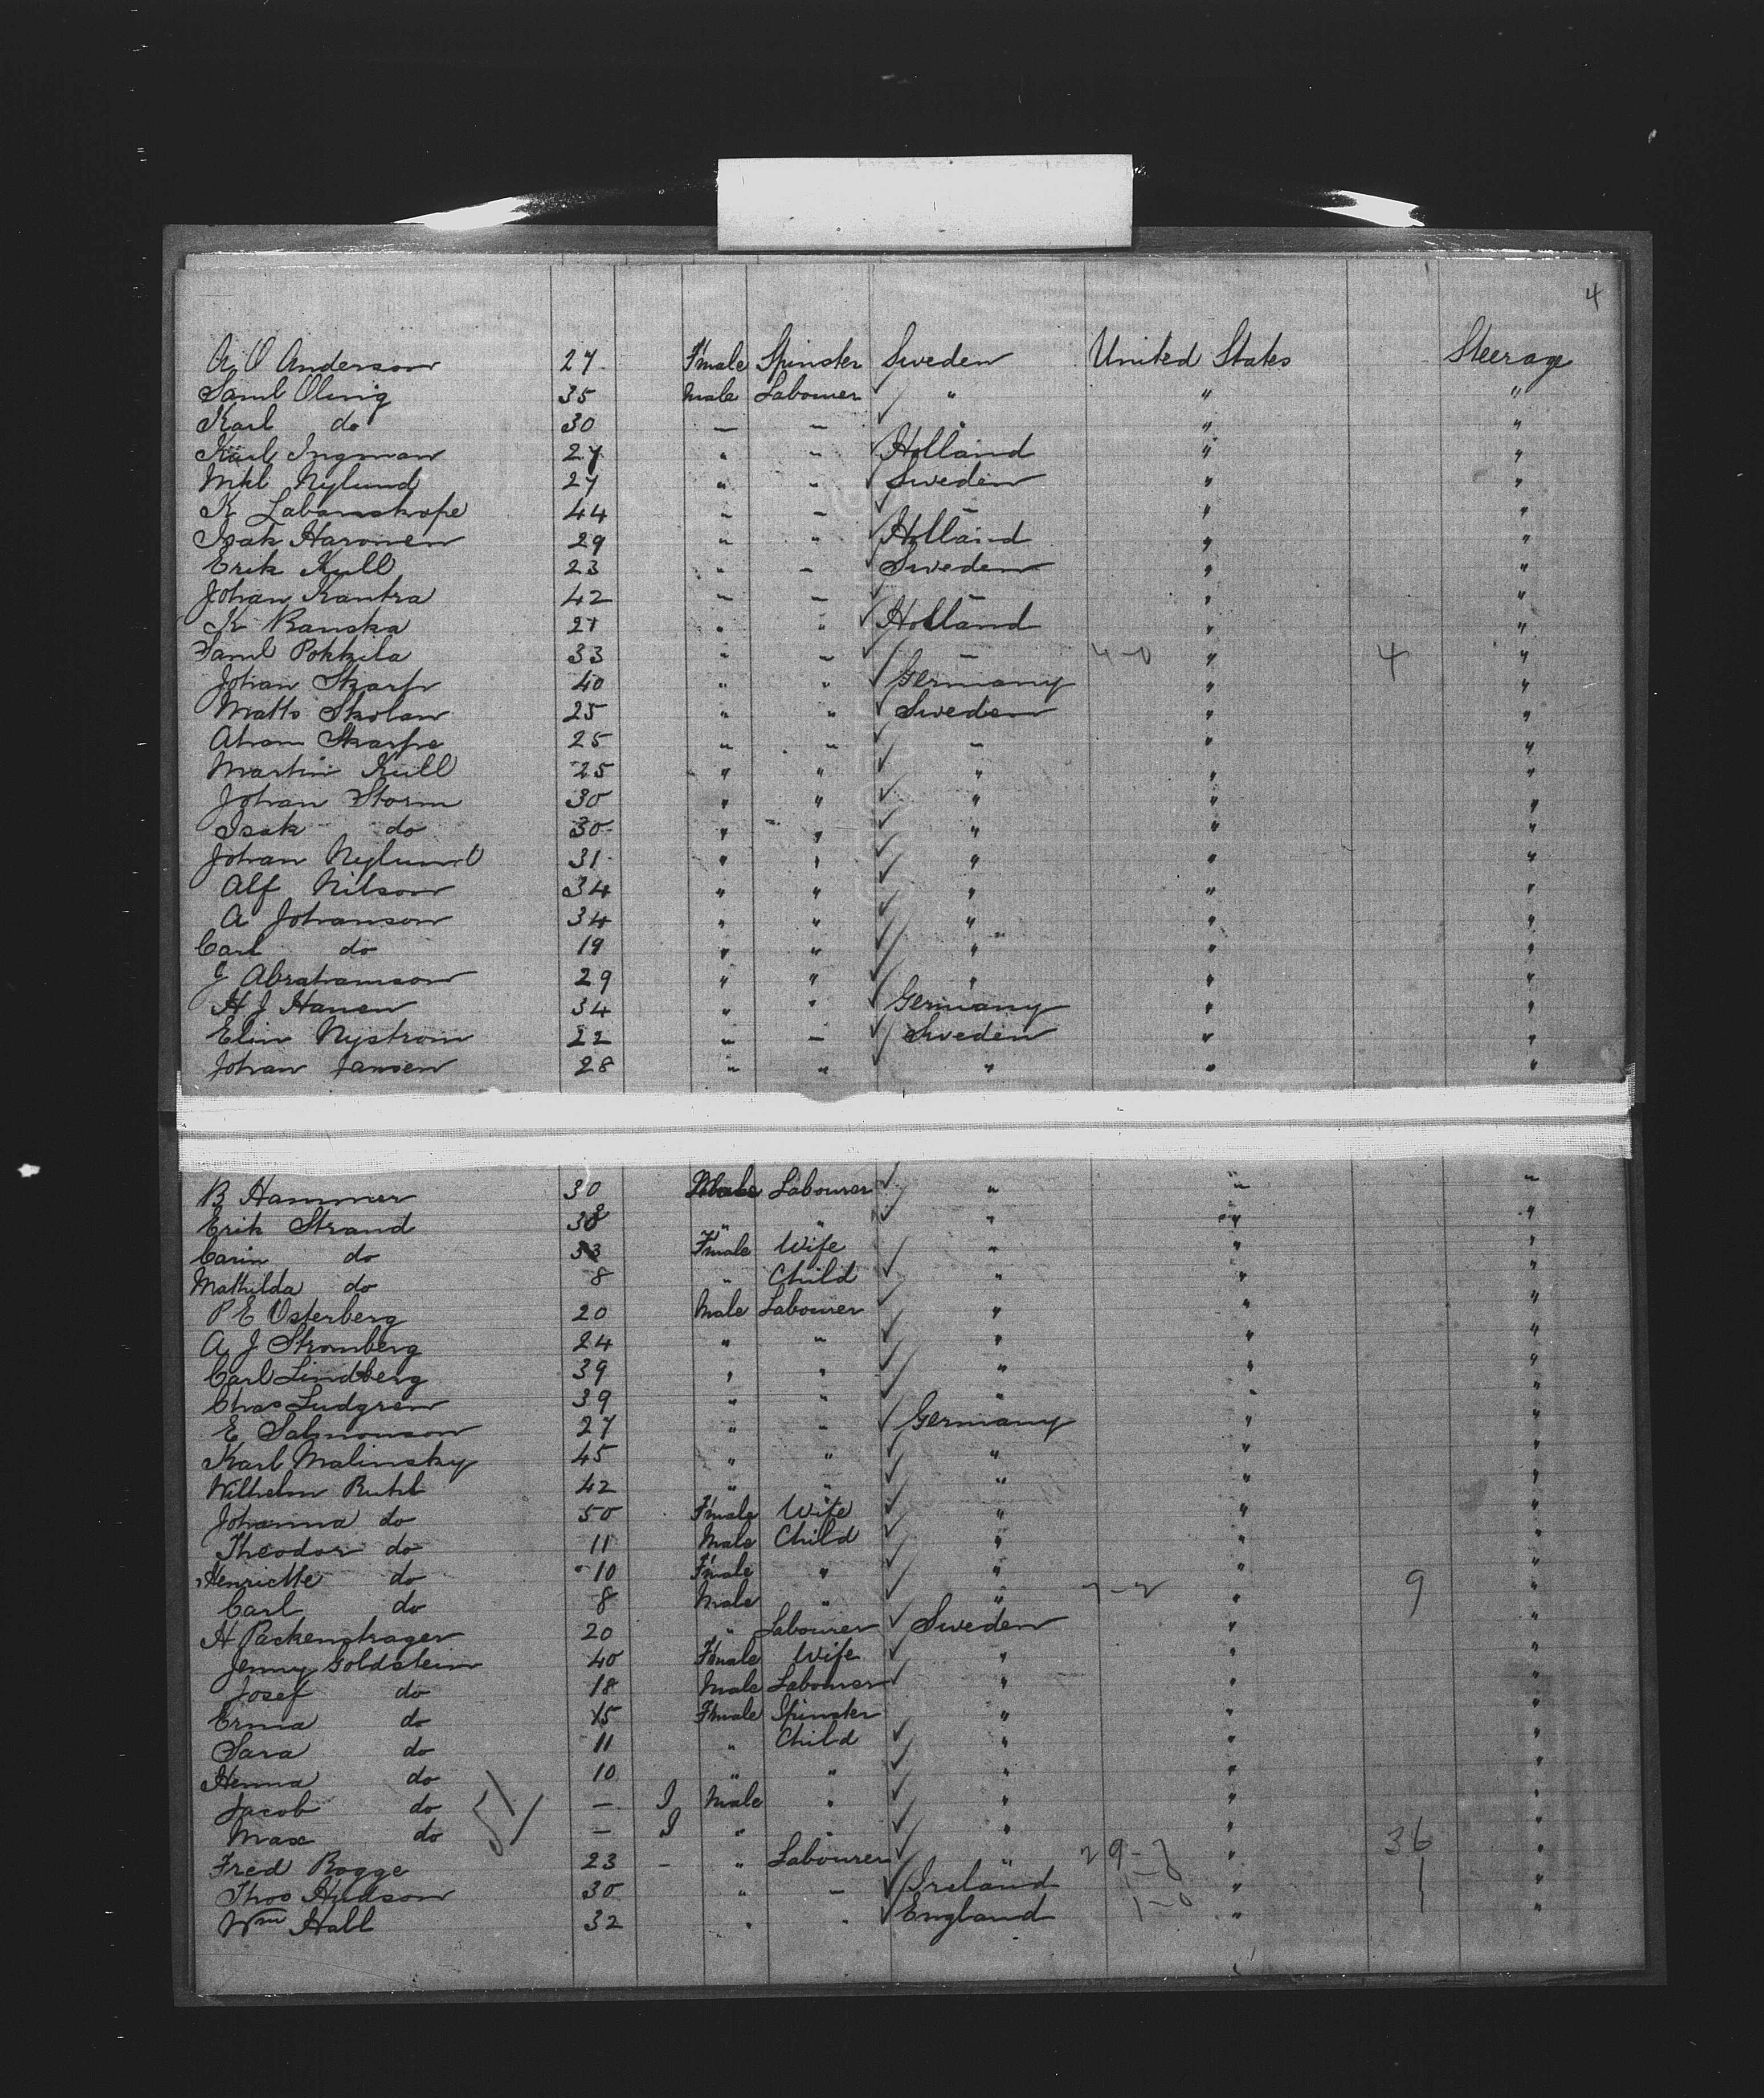 4
A O Anderson 27 F'male Spinster Sweden United States Steerage
Saml Olinig 35 Male Labourer ✓ " " "
Karl do 30 — — ✓ " " "
Karl Ingman 27 " " ✓ Holland " "
Mikl Nylund 27 " " ✓ Sweden " "
K 44 " — ✓ — " "
Isak Haronen 29 " " ✓ Holland " "
Erik Kull 23 " — ✓ Sweden " "
Johan Kantra 42 — — ✓ — " "
K Ranska 27 " " ✓ Holland " "
Saml Pokkila 33 " — ✓ — 4-0 " 4 "
Johan Skarp 40 " " ✓ Germany " "
Matts Skolan 25 " " ✓ Sweden " "
Abram Skarpe 25 " " ✓ " " "
Martin Kull 25 " " ✓ " " "
Johan Storm 30 " " ✓ " " "
Isak do 30 " " ✓ " " "
Johan Nylund 31 " " ✓ " " "
Alf Nilson 34 " " ✓ " " "
A Johanson 34 " " ✓ " " "
Carl do 19 " " ✓ " " "
J Abrahamson 29 " " ✓ " " "
H J Hansen 34 " " ✓ Germany " "
Elin Nystrom 22 " — ✓ Sweden " "
Johan Jansen 28 " " ✓ " " "
B Hammer 30 Male Labourer ✓ " " "
Erik Strand 38 " " ✓ " " "
Carin do 33 F'male Wife " " "
Mathilda do 8 " Child ✓ " " "
P E Osterberg 20 Male Labourer ✓ " " "
A J Stromberg 24 " " ✓ " " "
Carl Lindberg 39 " " ✓ " " "
Chas Ludgren 39 " " ✓ " " "
E Salmonson 27 " " ✓ Germany " "
Karl Malinsky 45 " " ✓ " " "
Wilhelm Ruhl 42 " " ✓ " " "
Johanna do 50 F'male Wife ✓ " " "
Theodor do 11 Male Child ✓ " " "
Henriette do 10 F'male " ✓ " " "
Carl do 8 Male " ✓ " 7-2 " 9 "
H Packenstrager 20 " Labourer ✓ Sweden " "
Jenny Goldstein 40 F'male Wife ✓ " " "
Josef do 18 Male Labourer ✓ " " "
Erma do 15 F'male Spinster " " "
Sara do 11 " Child ✓ " " "
Henna do 10 " " ✓ " " "
Jacob do — I Male " ✓ " " "
Max do — I " " ✓ " " "
Fred Rogge 23 — " Labourer ✓ " 29-7 " 36 "
Thos Hudson 30 " — ✓ Ireland 1-0 " 1 "
Wm Hall 32 " " ✓ England 1-0 " 1 "